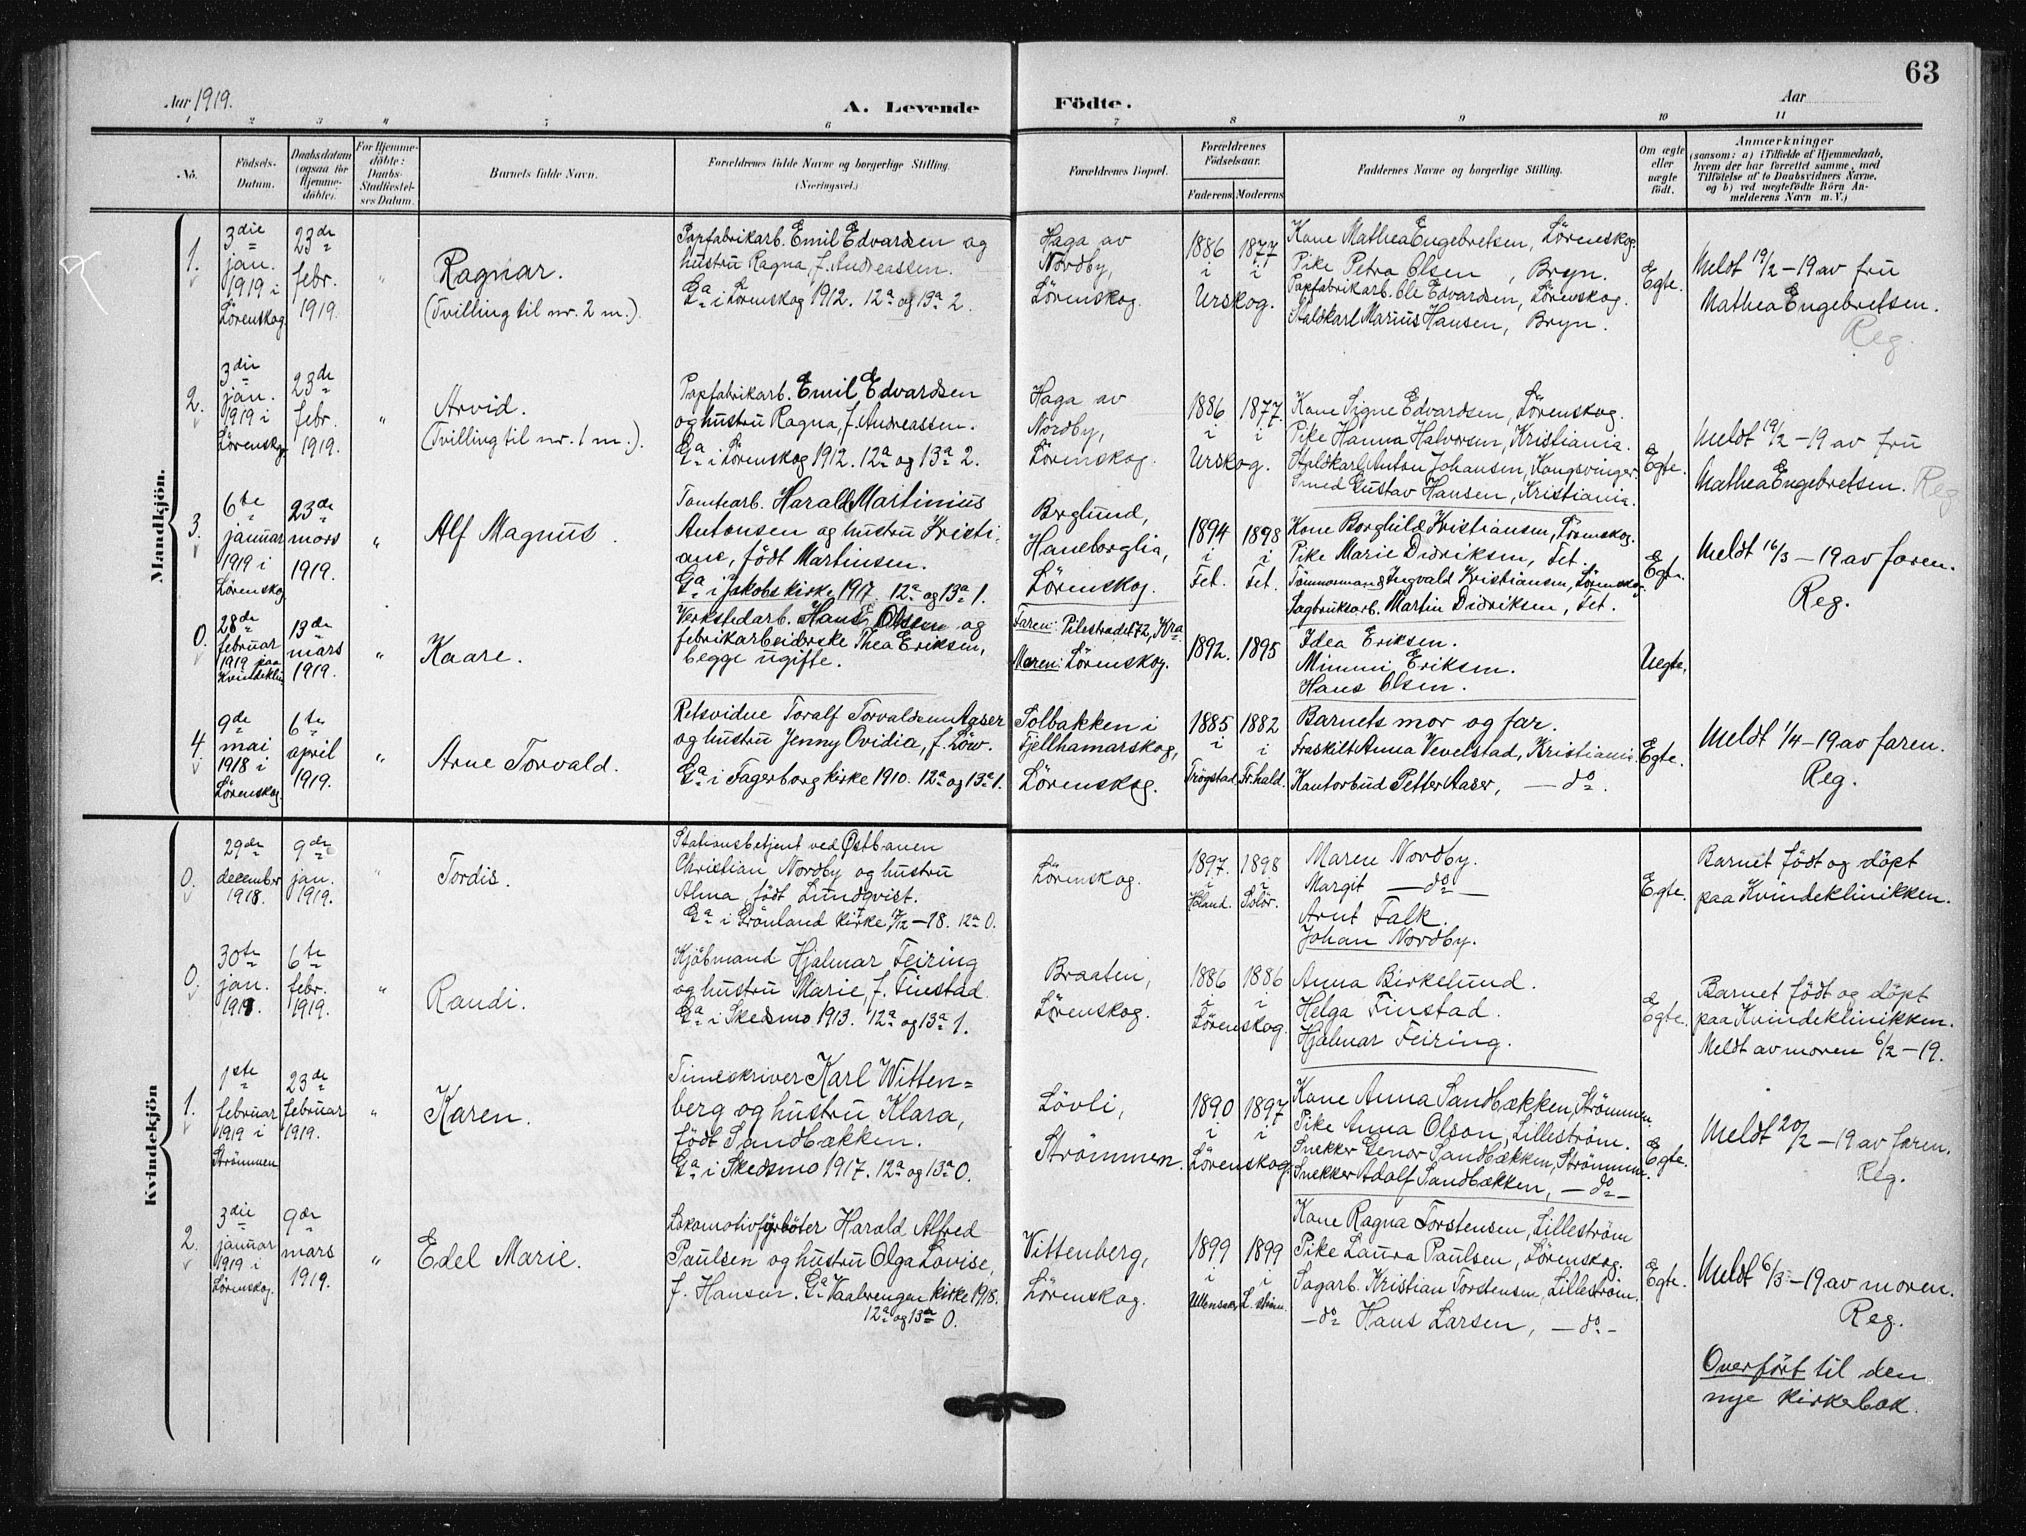 63
Aar 1919.
A. Levende
Födte.
Aar
1 2 3 4 5 6 7 8 9 10 11
No.
Födsels-
Datum.
Daabsdatum
(ogsaa for
Hjemme-
döbte).
For Hjemme-
döbte:
Daabs-
Stadfæstel-
ses Datum.
Barnets fulde Navn.
Forældrenes fulde Navne og borgerlige Stilling.
(Næringsvei.)
Forældrenes Bopæl.
Forældrenes
Födselsaar.
Faderens Moderens
Faddernes Navne og borgerlige Stilling.
Om ægte
eller
uægte
født.
Anmærkninger
(saasom: a) i Tilfælde af Hjemmedaab,
hvem der har forrettet samme, med
Tilföielse af to Daabsvidners Navne,
og b) ved uægtefödte Börn An-
melderens Navn m. V.)
Mandkjön.
1.
3die
jan.
1919 i
Lörenskog.
23de
febr.
1919.
"
Ragnar.
(Tvilling til nr. 2 m.).
Papfabrikarb. Emil Edvardsen og
hustru Ragna, f. Andreassen.
Ga i Lörenskog 1912. 12a og 13a 2.
Haga av
Nordby,
Lörenskog.
1886 1877
i i
Urskog.
Kone Mathea Engebretsen, Lörenskog.
Pike Petra Olsen, Bryn.
Papfabrikarb. Ole Edvardsen, Lörenskog.
Staldkarl Marius Hansen, Bryn.
Egte.
Meldt 19/2 - 19 av fru
Mathea Engebretsen.
Reg.
2.
3die
jan.
1919 i
Lörenskog
23de
febr.
1919.
"
Arvid.
(Tvilling til nr. 1 m.).
Papfabrikarb. Emil Edvardsen
og hustru Ragna, f. Andreassen.
Ga i Lörenskog 1912. 12a og 13a 2.
Haga av
Nordby,
Lörenskog.
1886 1877.
i i
Urskog.
Kone Signe Edvardsen, Lörenskog.
Pike Hanna Halvorsen, Kristiania.
Staldkarl Anton Johansen, Kongsvinger
Smed Gustav Hansen, Kristiania.
Egte.
Meldt 19/2 - 19 av fru
Mathea Engebretsen. Reg
3.
6te
januar
1919 i
Lörenskog
23de
mars
1919.
"
Alf Magnus.
Tomtearb. Harald Martinius
Antonsen og hustru Kristi-
ane, födt Martinsen.
Ga i Jakobs kirke 1917 12a og 13a 1.
Berglund,
Haneborglia,
Lörenskog.
1894 1898
i i
Fet. Fet.
Kone Borghild Kristiansen, Lörenskog.
Pike Marie Didriksen, Fet.
Tömmermand Ingvald Kristiansen, Lörenskog
Sagbruksarb. Martin Didriksen, Fet.
Egte.
Meldt 16/3 - 19 av faren.
Reg.
0.
28de
februar
1919 paa
Kvindeklin
19de
mars
1919.
"
Kaare.
Verkstedarb. Hans Olsen og
fabrikarbeiderske Thea Eriksen,
begge ugifte.
Faren: Pilestradet 72, Kra
Moren: Lörenskog.
1892. 1895
Idea Eriksen.
Mimmi Eriksen.
Hans Olsen.
Uegte.
4.
9de
mai
1918 i
Lörenskog.
6te
april
1919.
"
Arne Torvald.
Retsvidne Toralf Torvaldsen Aaser
og hustru Jenny Ovidia, f. Löw.
Ga i Fagerborg kirke 1910. 12a og 13a 1.
Solbakken i
Fjellhamarskog,
Lörenskog.
1885 1882
i i
Trögstad. Fr.hald.
Barnets mor og far.
Fraskilt Anna Vevelstad, Kristiania
Kontorbud Petter Aaser, — do.
Egte.
Meldt 1/4 - 19 av faren.
Reg.
Kvindekjön
0.
29de
december
1918.
9de
jan.
1919.
"
Tordis.
Stationsbetjent ved Østbanen
Christian Nordby og hustru
Alma, födt Lundqvist.
Ga i Grönland kirke 17/12 - 18. 12a 0.
Lörenskog.
1897. 1898
i i
Höland. Solör.
Maren Nordby.
Margit — do —
Arnt Falk.
Johan Nordby.
Egte.
Barnet födt og döpt
paa Kvindeklinikken.
0.
30te
jan.
1919.
6te
febr.
1919.
"
Randi.
Kjöbmand Hjalmar Feiring
og hustru Marie, f. Finstad.
Ga i Skedsmo 1913. 12a og 13a 1.
Braaten,
Lörenskog.
1886 1886
i i
Lörenskog.
Anna Birkelund.
Helga Finstad.
Hjalmar Feiring.
Egte.
Barnet födt og döpt
paa Kvindeklinikken.
Meldt av moren 6/2 - 19.
1.
1ste
februar
1919 i
Strömmen
23de
februar
1919.
"
Karen.
Timeskriver Karl Witten=
berg og hustru Klara,
födt Sandbækken.
Ga i Skedsmo 1917. 12a og 13a 0.
Lövli,
Strömmen.
1890 1897
i i
Lörenskog.
Kone Anna Sandbækken, Strömmen
Pike Anna Olson, Lilleström.
Snekker Genor Sandbækken, Strömmen.
Snekker Adolf Sandbækken, — do —
Egte.
Meldt 20/2 - 19 av faren.
Reg.
2.
3die
januar
1919 i
Lörenskog.
9de
mars
1919.
"
Edel Marie.
Lokomotivfyrböter Harald Alfred
Paulsen og hustru Olga Lovise,
f. Hansen. Ga Vaalerengen kirke 1918.
12a og 13a 0.
Vittenberg,
Lörenskog.
1899 1899
i i
Ullensaker L.ström.
Kone Ragna Torstensen, Lilleström
Pike Laura Paulsen, Lörenskog.
Sagarb. Kristian Torstensen, Lilleström.
— do Hans Larsen, — do —
Egte.
Meldt 6/3 - 19 av moren.
Reg.
Overfört til den
nye kirkebok.